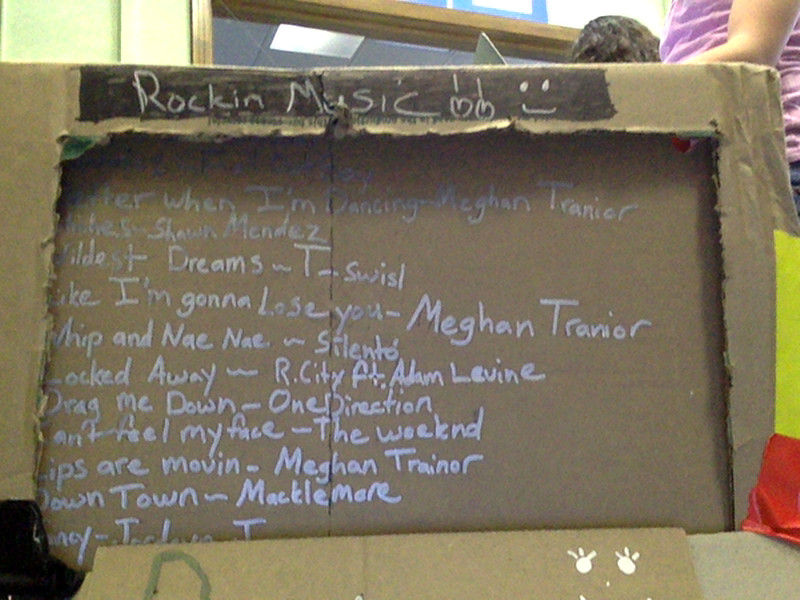 Rockin Music
when I'm Dancing-Meghan Tranior
Shawn Mendez
Dreams ~ T-swisl
I'm gonna Lose you- Meghan Tranior
and Nae Nae ~ Silento
Locked Away ~ R.City ft. Adam Levine
Drag me Down-OneDirection
feel my face-The weeknd
Lips are movin- Meghan Trainor
Down Town ~ Macklemore